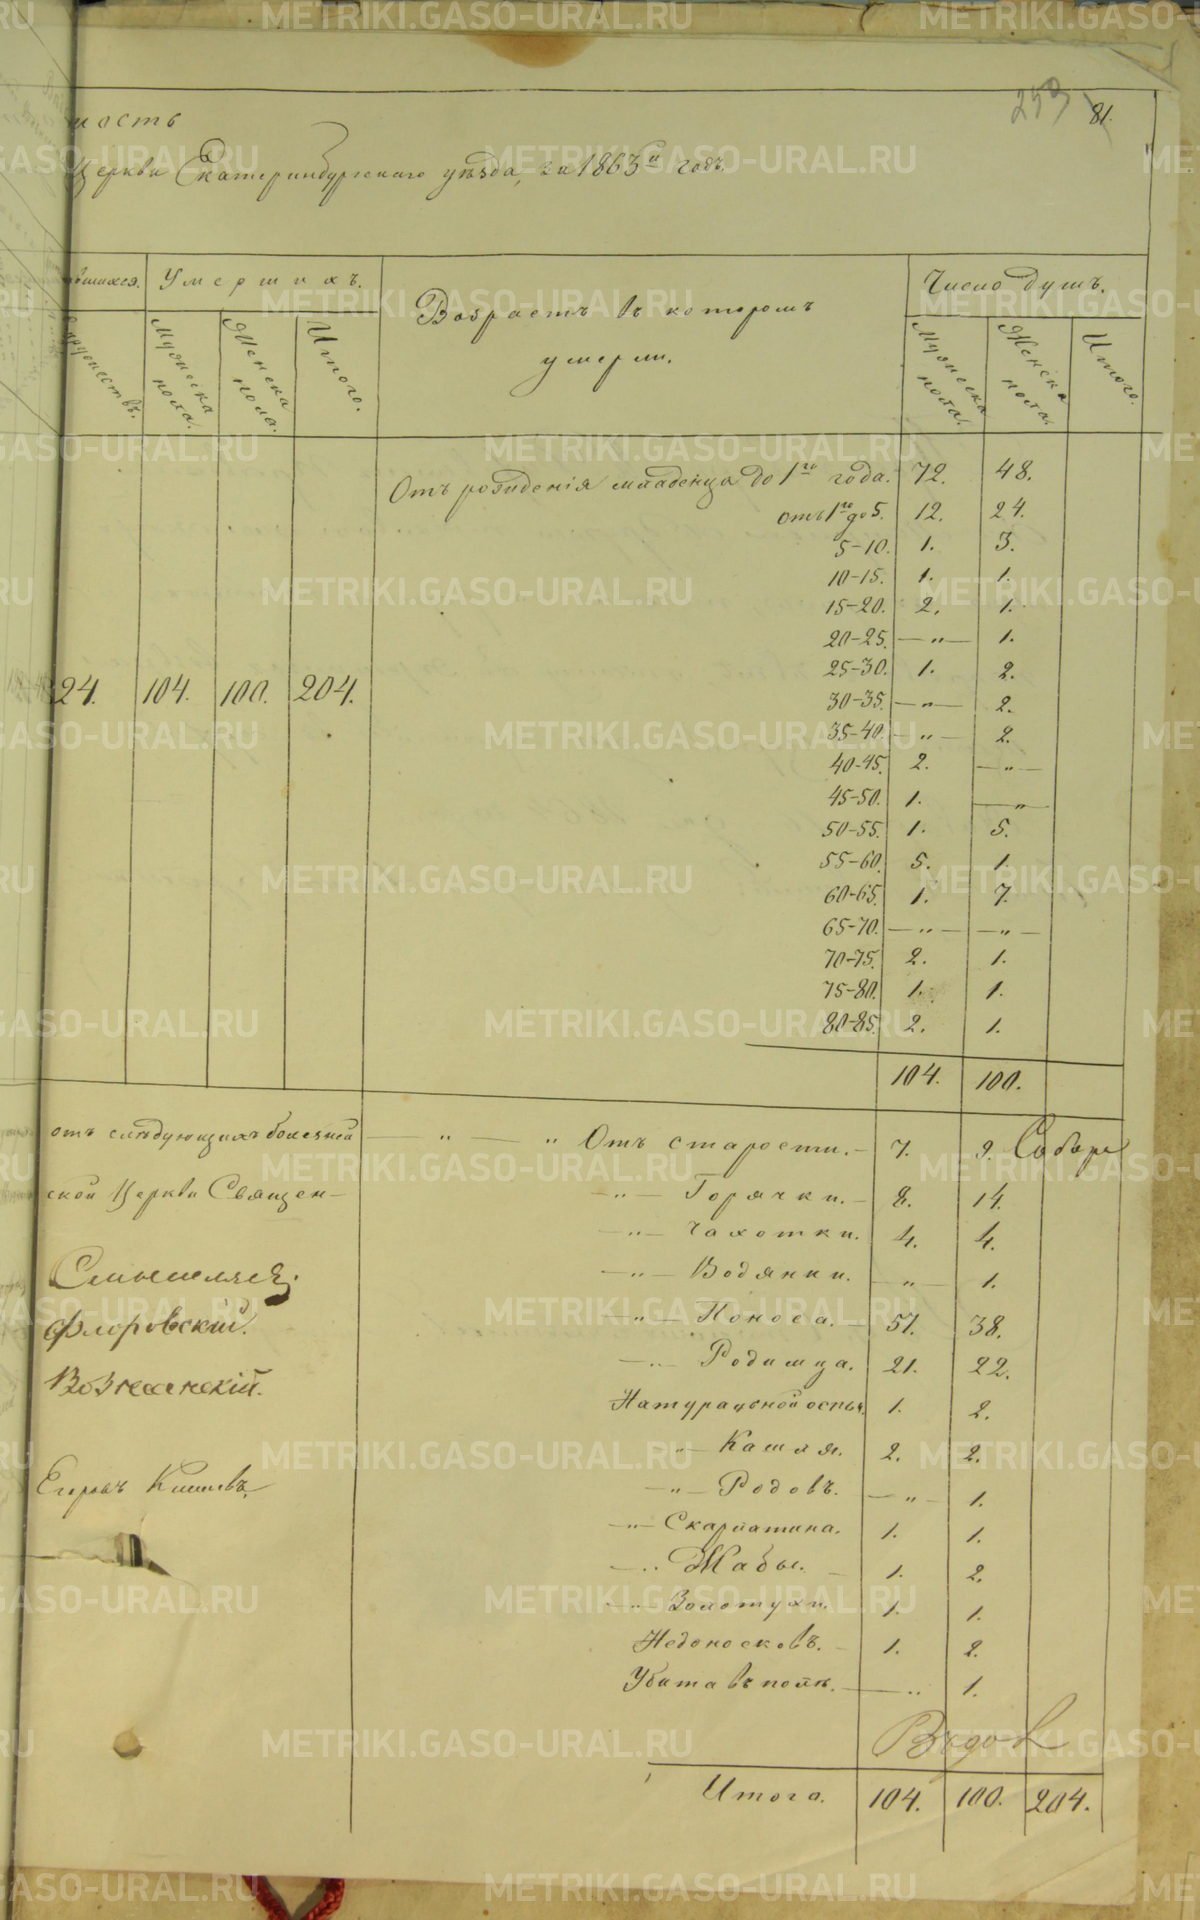 METRIKI.GASO-URAL.RU
253 81.
ность
Церкви Екатеринбургскаго уѣзда, за 1863й годъ.
вшихся. Умершихъ. Возрастъ въ которомъ умерли. Число душъ.
супружествъ. Мужеска пола. Женска пола. Итого. Мужеска пола. Женска пола. Итого.
Отъ рожденія младенца до 1го года. 72. 48.
отъ 1го до 5. 12. 24.
5-10. 1. 3.
10-15. 1. 1.
15-20. 2. 1.
20-25. — " — 1.
25-30. 1. 2.
24. 104. 100. 204.
30-35. — " — 2.
35-40. — " — 2.
40-45. 2. — " —
45-50. 1. — " —
50-55. 1. 5.
55-60. 5. 1.
60-65. 1. 7.
65-70. — " — — " —
70-75. 2. 1.
75-80. 1. 1.
80-85. 2. 1.
104. 100.
отъ слѣдующихъ болѣзней — " — " Отъ старости. — 7. 9. Соборн
ской Церкви Священ- — " — Горячки. — 8. 14.
— " — Чахотки. 4. 4.
Смышляев.
— " — Водянки. — " — 1.
Флоровскій.
— " — Поноса. — 57. 38.
Вознесенскій.
— " — Родимца. 21. 22.
Натуральной оспы. 1. 2.
" — Кашля. 2. 2.
Егоръ
— " — Родовъ. — " — 1.
— " — Скарлатина. 1. 1.
— " Жабы. — 1. 2.
— " Золотухи. 1. 1.
Недоносковъ. — 1. 2.
Убита въ полѣ. — " 1.
Итого. 104. 100. 204.